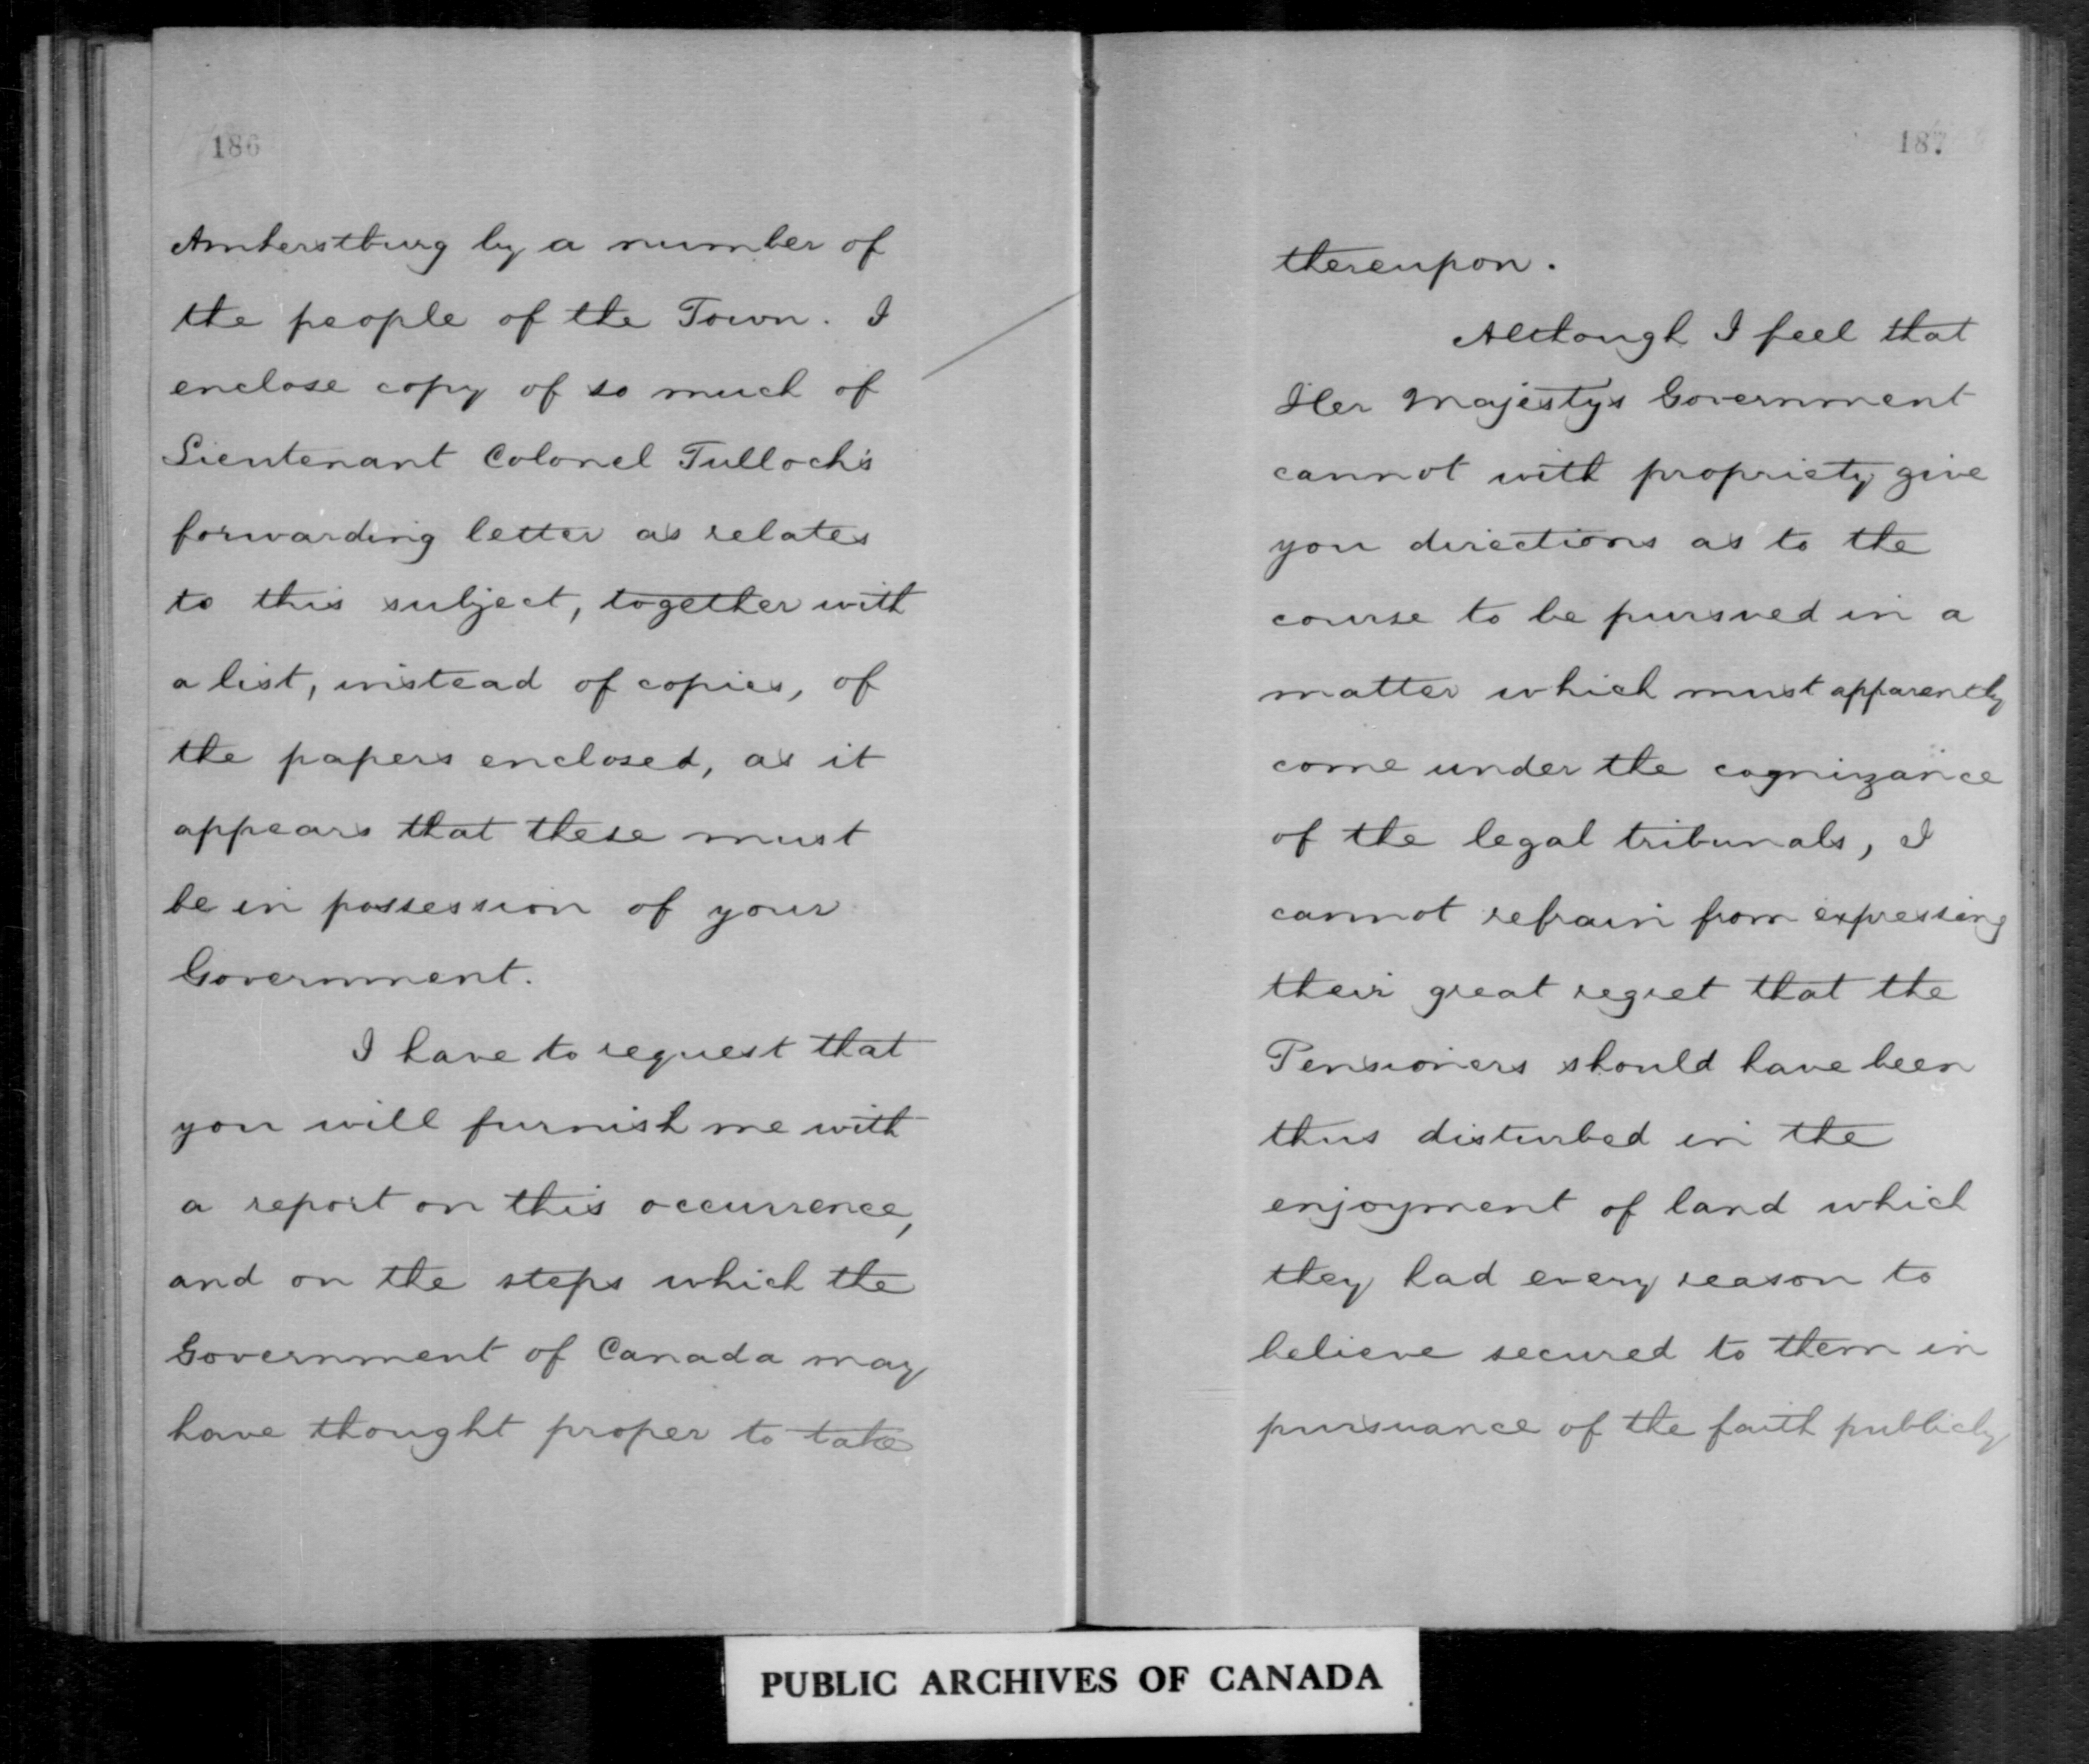 186
Amherstburg by a number of
the people of the Town. I
enclose copy of so much of
Lieutenant Colonel Tulloch's
forwarding letter as relates
to this subject, together with
a list, instead of copies, of
the papers enclosed, as it
appears that these must
be in possession of your
Government.
I have to request that
you will furnish me with
a report on this occurrence,
and on the steps which the
Government of Canada may
have thought proper to take
187
thereupon.
Although I feel that
Her Majestys Government
cannot with propriety give
you directions as to the
course to be pursued in a
matter which must apparently
come under the cognizance
of the legal tribunals, I
cannot refrain from expressing
their great regret that the
Pensioners should have been
thus disturbed in the
enjoyment of land which
they had every reason to
believe secured to them in
pursuance of the faith publicly
PUBLIC ARCHIVES OF CANADA